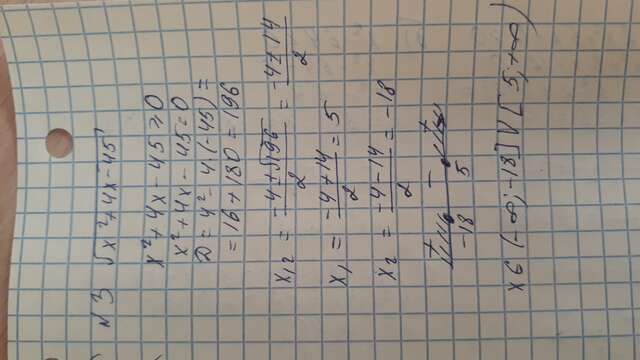 №3 √x²+4x-45
x²+4x-45≥0
x²+4x-45=0
D=4²-4·(-45)=
=16+180=196
x₁,₂ = (-4±√196)/2 = (-4±14)/2
x₁ = (-4+14)/2 = 5
x₂ = (-4-14)/2 = -18
+ - +
-18 5
x є (-∞; -18] V [5, +∞)